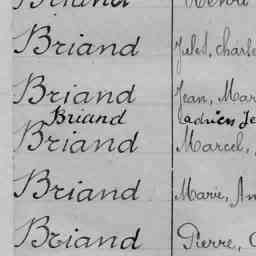 Briand Henri
Briand Jules, Charle
Briand Jean, Mar
Briand adrien Je
Briand Marcel,
Briand Marie, An
Briand Pierre,